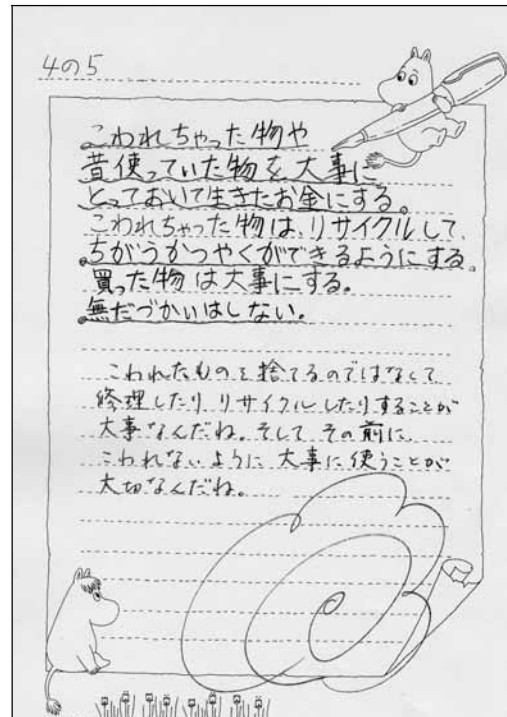 4の5
こわれちゃった物や
昔使っていた物を大事に
とっておいて生きたお金にする。
こわれちゃった物は、リサイクルして、
ちがうかつやくができるようにする。
買った物は大事にする。
無だづかいはしない。
こわれたものを捨てるのではなくて
修理したり、リサイクルしたりすることが
大事なんだね。そして その前に、
こわれないように 大事に使うことが
大切なんだね。